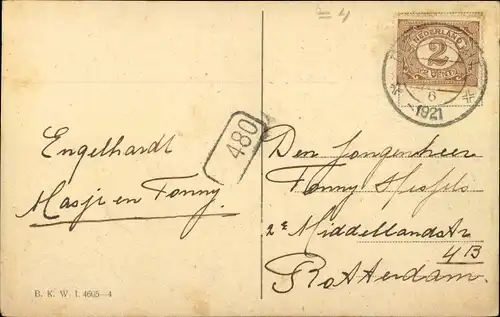 = 4
NEDERLAND
2
6
1921
480
Engelhardt
Masji en Fonny.
Den Jongenheer
Fonny
2e Middellandstr
4B
Rotterdam.
B. K. W. I. 4605—4